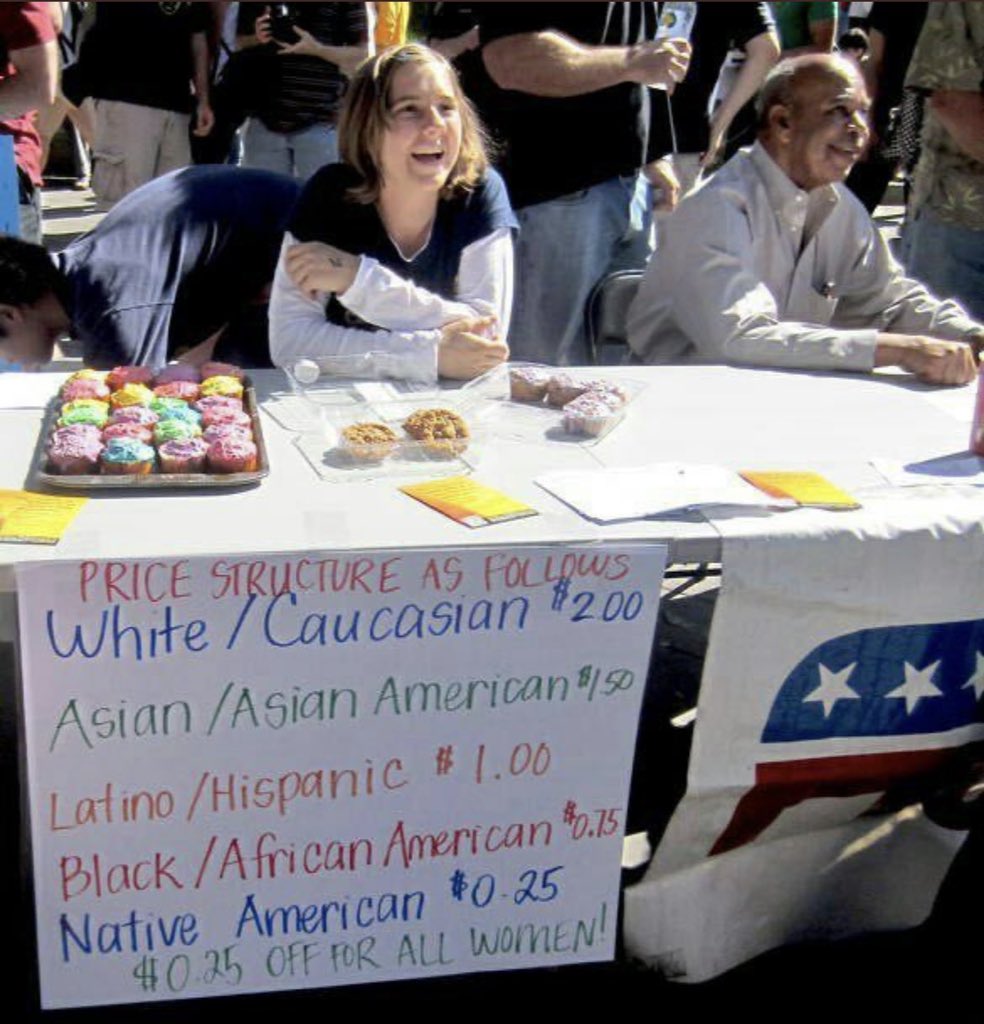 PRICE STRUCTURE AS FOLLOWS
White/Caucasian $2.00
Asian/Asian American $1.50
Latino/Hispanic $1.00
Black/African American $0.75
Native American $0.25
$0.25 OFF FOR ALL WOMEN!